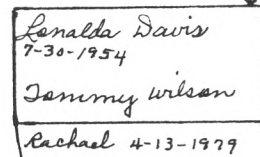 Lonalda Davis
7-30-1954
Tommy Wilson
Rachael 4-13-1979